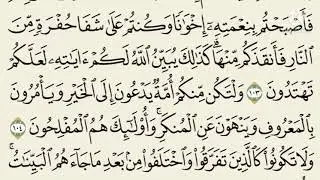 فَأَصْبَحْتُم بِنِعْمَتِهِۦٓ إِخْوَٰنًا وَكُنتُمْ عَلَىٰ شَفَا حُفْرَةٍ مِّنَ
ٱلنَّارِ فَأَنقَذَكُم مِّنْهَا ۗ كَذَٰلِكَ يُبَيِّنُ ٱللَّهُ لَكُمْ ءَايَٰتِهِۦ لَعَلَّكُمْ
تَهْتَدُونَ ١٠٣ وَلْتَكُن مِّنكُمْ أُمَّةٌ يَدْعُونَ إِلَى ٱلْخَيْرِ وَيَأْمُرُونَ
بِٱلْمَعْرُوفِ وَيَنْهَوْنَ عَنِ ٱلْمُنكَرِ ۚ وَأُو۟لَٰٓئِكَ هُمُ ٱلْمُفْلِحُونَ ١٠٤
وَلَا تَكُونُوا۟ كَٱلَّذِينَ تَفَرَّقُوا۟ وَٱخْتَلَفُوا۟ مِنۢ بَعْدِ مَا جَآءَهُمُ ٱلْبَيِّنَٰتُ ۚ